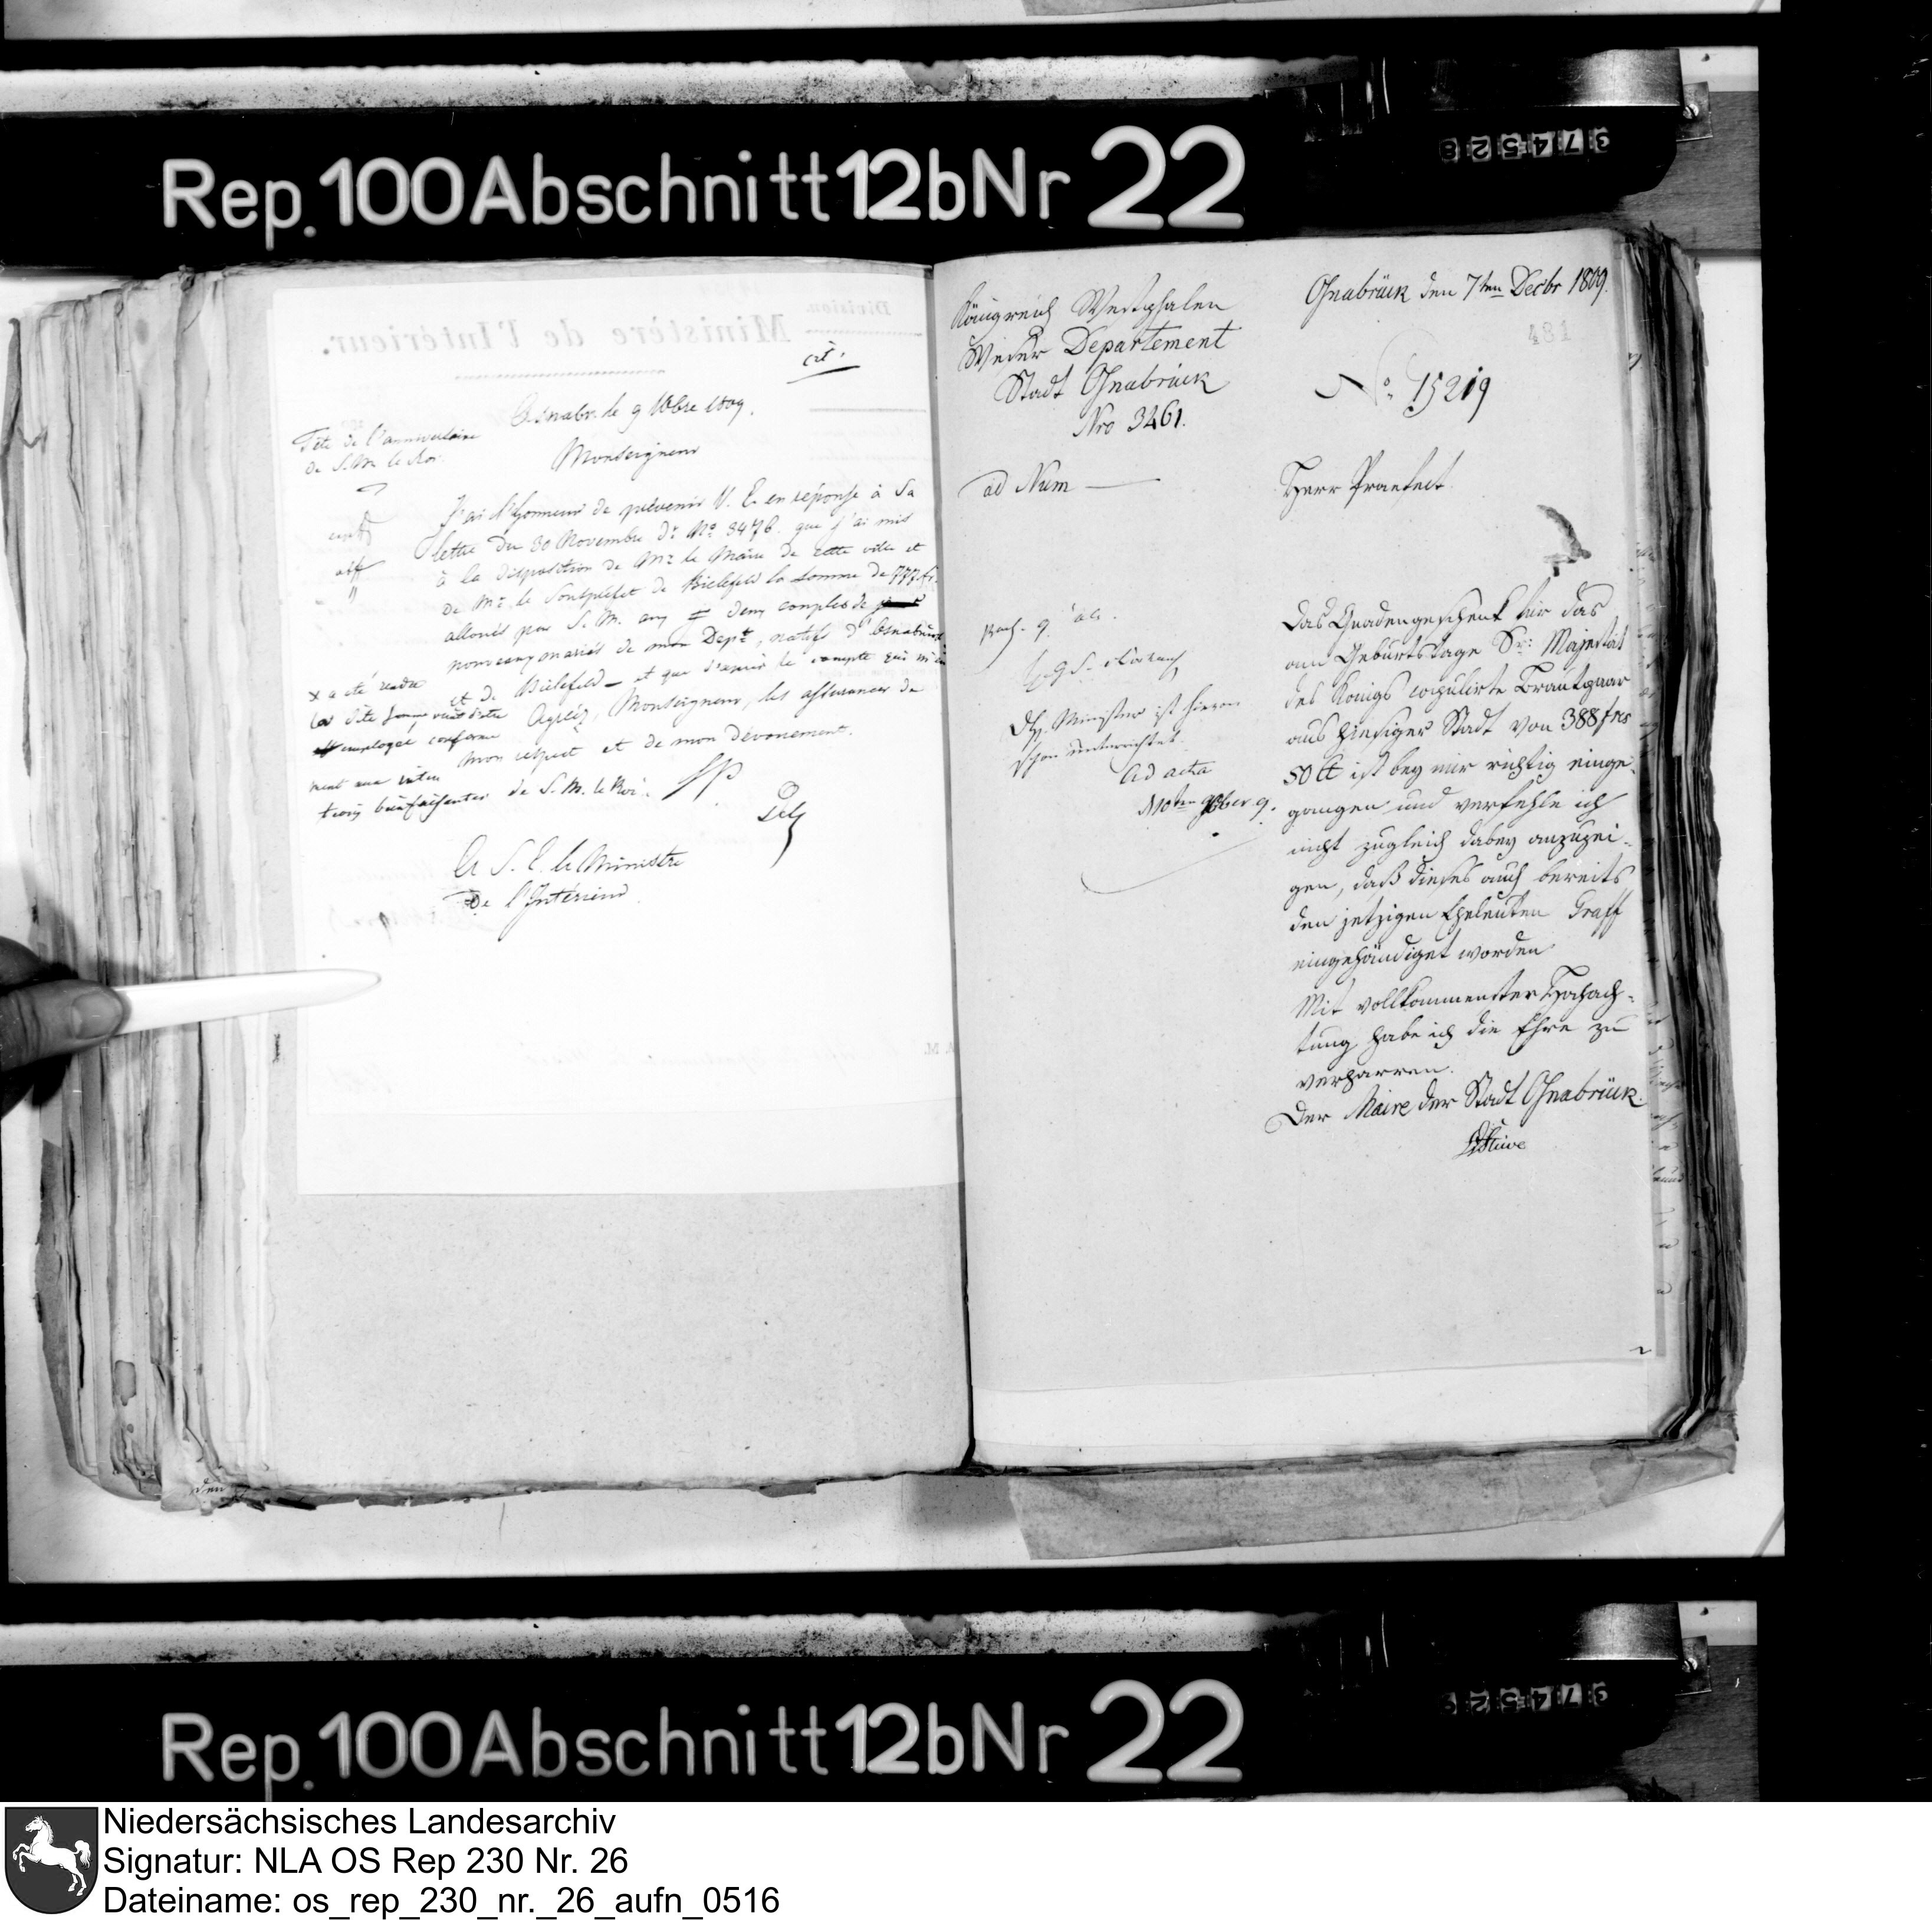 Rep. 100 Abschnitt 12b Nr 22
974528
Ministère de l'Intérieur.
Division
Osnabr. le 9 Xbre 1809.
Fête de l'anniversaire
de S. M. le Roi.
Monseigneur
J'ai l'honneur de prévenir V. E. en réponse à sa
lettre du 30 Novembre dr No 3476. que j'ai mis
à la disposition de Mr le Maire de cette ville et
de Mr. le Souspréfet de Bielefeld la somme de 777 fr.
alloués par S. M. aux deux couples de
nouveaux mariés de mon Dept, natifs d'Osnabruck
et de Bielefeld – et que d'après le compte qui m'en
x a été rendu
la dite somme vient d'etre
employée conformé
ment aux inten
tions bienfaisantes de S. M. le Roi.
Agréez, Monseigneur, les assurances de
mon respect et de mon dévouement.
A S. E. le Ministre
de l'Intérieur.
Königreich Westphalen
Weser Departement
Stadt Osnabrück
Nro 3461.
ad Num —
Osnabrück den 7ten Decbr 1809.
481
No. 15219
Herr Praefect.
Das Gnadengeschenk für das
am Geburtstage Sr. Majestät
des Königs copulirte Brautpaar
aus hiesiger Stadt von 388 frcs
50 Ct ist bey mir richtig einge-
gangen und verfehle ich
nicht zugleich dabey anzuzei-
gen, daß dieses auch bereits
den jetzigen Eheleuten Graff
eingehändiget worden.
Mit vollkommenster Hochach-
tung habe ich die Ehre zu
verharren.
Der Maire der Stadt Osnabrück.
Stüve
Minister ist hievon
schon unterrichtet.
Ad acta
Rep. 100 Abschnitt 12b Nr 22
Niedersächsisches Landesarchiv
Signatur: NLA OS Rep 230 Nr. 26
Dateiname: os_rep_230_nr._26_aufn_0516